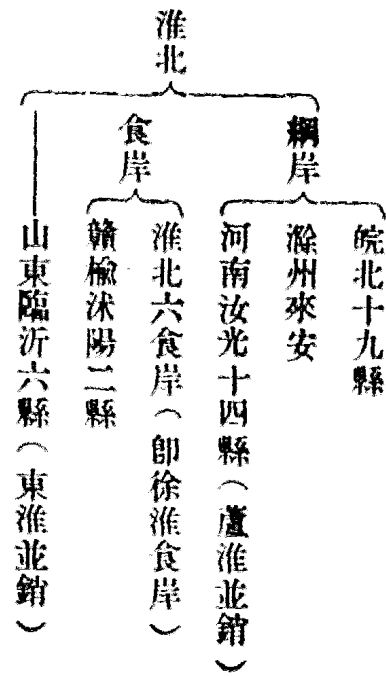 淮北
綱岸
皖北十九縣
滁州來安
河南汝光十四縣（蘆淮並銷）
食岸
淮北六食岸（即徐淮食岸）
贛榆沭陽二縣
山東臨沂六縣（東淮並銷）